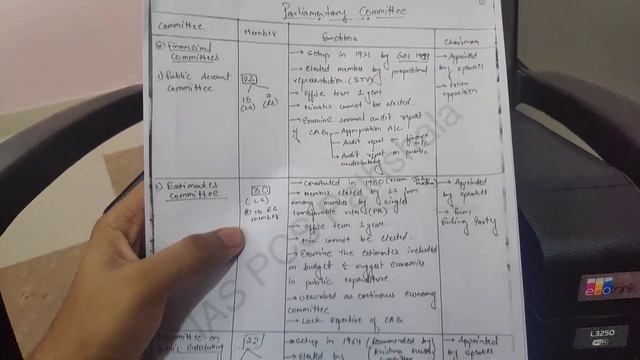 Parliamentary Committee
Committee
Member
Functions
Chairman
Financial
Committees
1) Public Account
Committee
22
15
(LS)
7
(RS)
→ Setup in 1921 by GOI
→ Elected member by propotional
representation. (STV)
→ Office term 1 year.
→ Minister cannot be elected.
→ Examine annual audit report
of CAG
Appropriation A/c
Audit report on finance A/c
Audit report on public
undertaking
→ Appointed
by speaker
→ From
opposition
2) Estimates
Committee
30
(LS)
No RS
member
→ Constituted in 1950
→ Member elected by LS from
among member by single
transferable vote (PR)
→ Office term 1 year.
→ Min. cannot be elected.
→ Examine the estimates included
in budget & suggest economies
in public expenditure.
→ Described as continous economy
committee
→ Lack expertise of CAG
→ Appointed
by speaker
→ From
Ruling Party
Committee on
Public Undertaking
22
→ Setup in 1964 (Recommended by
Krishna
→ Elected by
→ Appointed
speaker
ecotank
L3250
WiFi